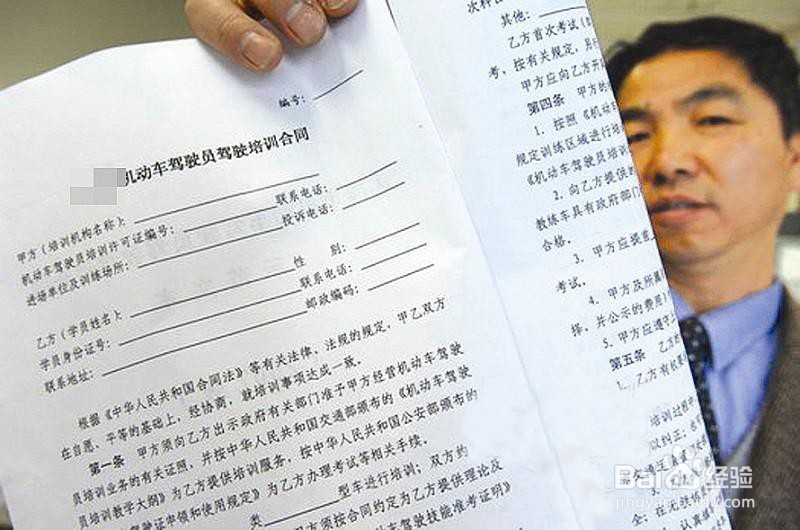 编号：
机动车驾驶员驾驶培训合同
甲方（培训机构名称）：
联系电话：
机动车驾驶培训许可证编号：
投诉电话：
进场单位及训练场所：
乙方（学员姓名）：
性 别：
学员身份证号：
联系电话：
联系地址：
邮政编码：
根据《中华人民共和国合同法》等有关法律、法规的规定，甲乙双方
在自愿、平等的基础上，经协商，就培训事项达成一致。
第一条 甲方须向乙方出示政府有关部门准予甲方经营机动车驾驶
员培训业务的有关证照，并按中华人民共和国交通部颁布的《机动车驾驶
员培训教学大纲》为乙方提供培训服务，按中华人民共和国公安部颁布的
驾驶证申领和使用规定》为乙方办理考试等相关手续。
类 型车进行培训；双方约
方须按合同约定为乙方提供理论及
驾驶技能准考证明》
次科
其他：
乙方首次考试（
考，按有关规定，另
甲方应向乙方开
第四条 甲方的
1. 按照《机动
规定训练区域进行培
《机动车驾驶员培训
2. 向乙方提供的
教练车具有政府部门
合格。
3. 甲方应提
考试。
4. 甲方及所属
择，并公示的费用
5. 甲方应遵守
第五条 乙方
1. 乙方有权
培训过程中
以纠正；
Baidu 经验
jingyan.baidu.com